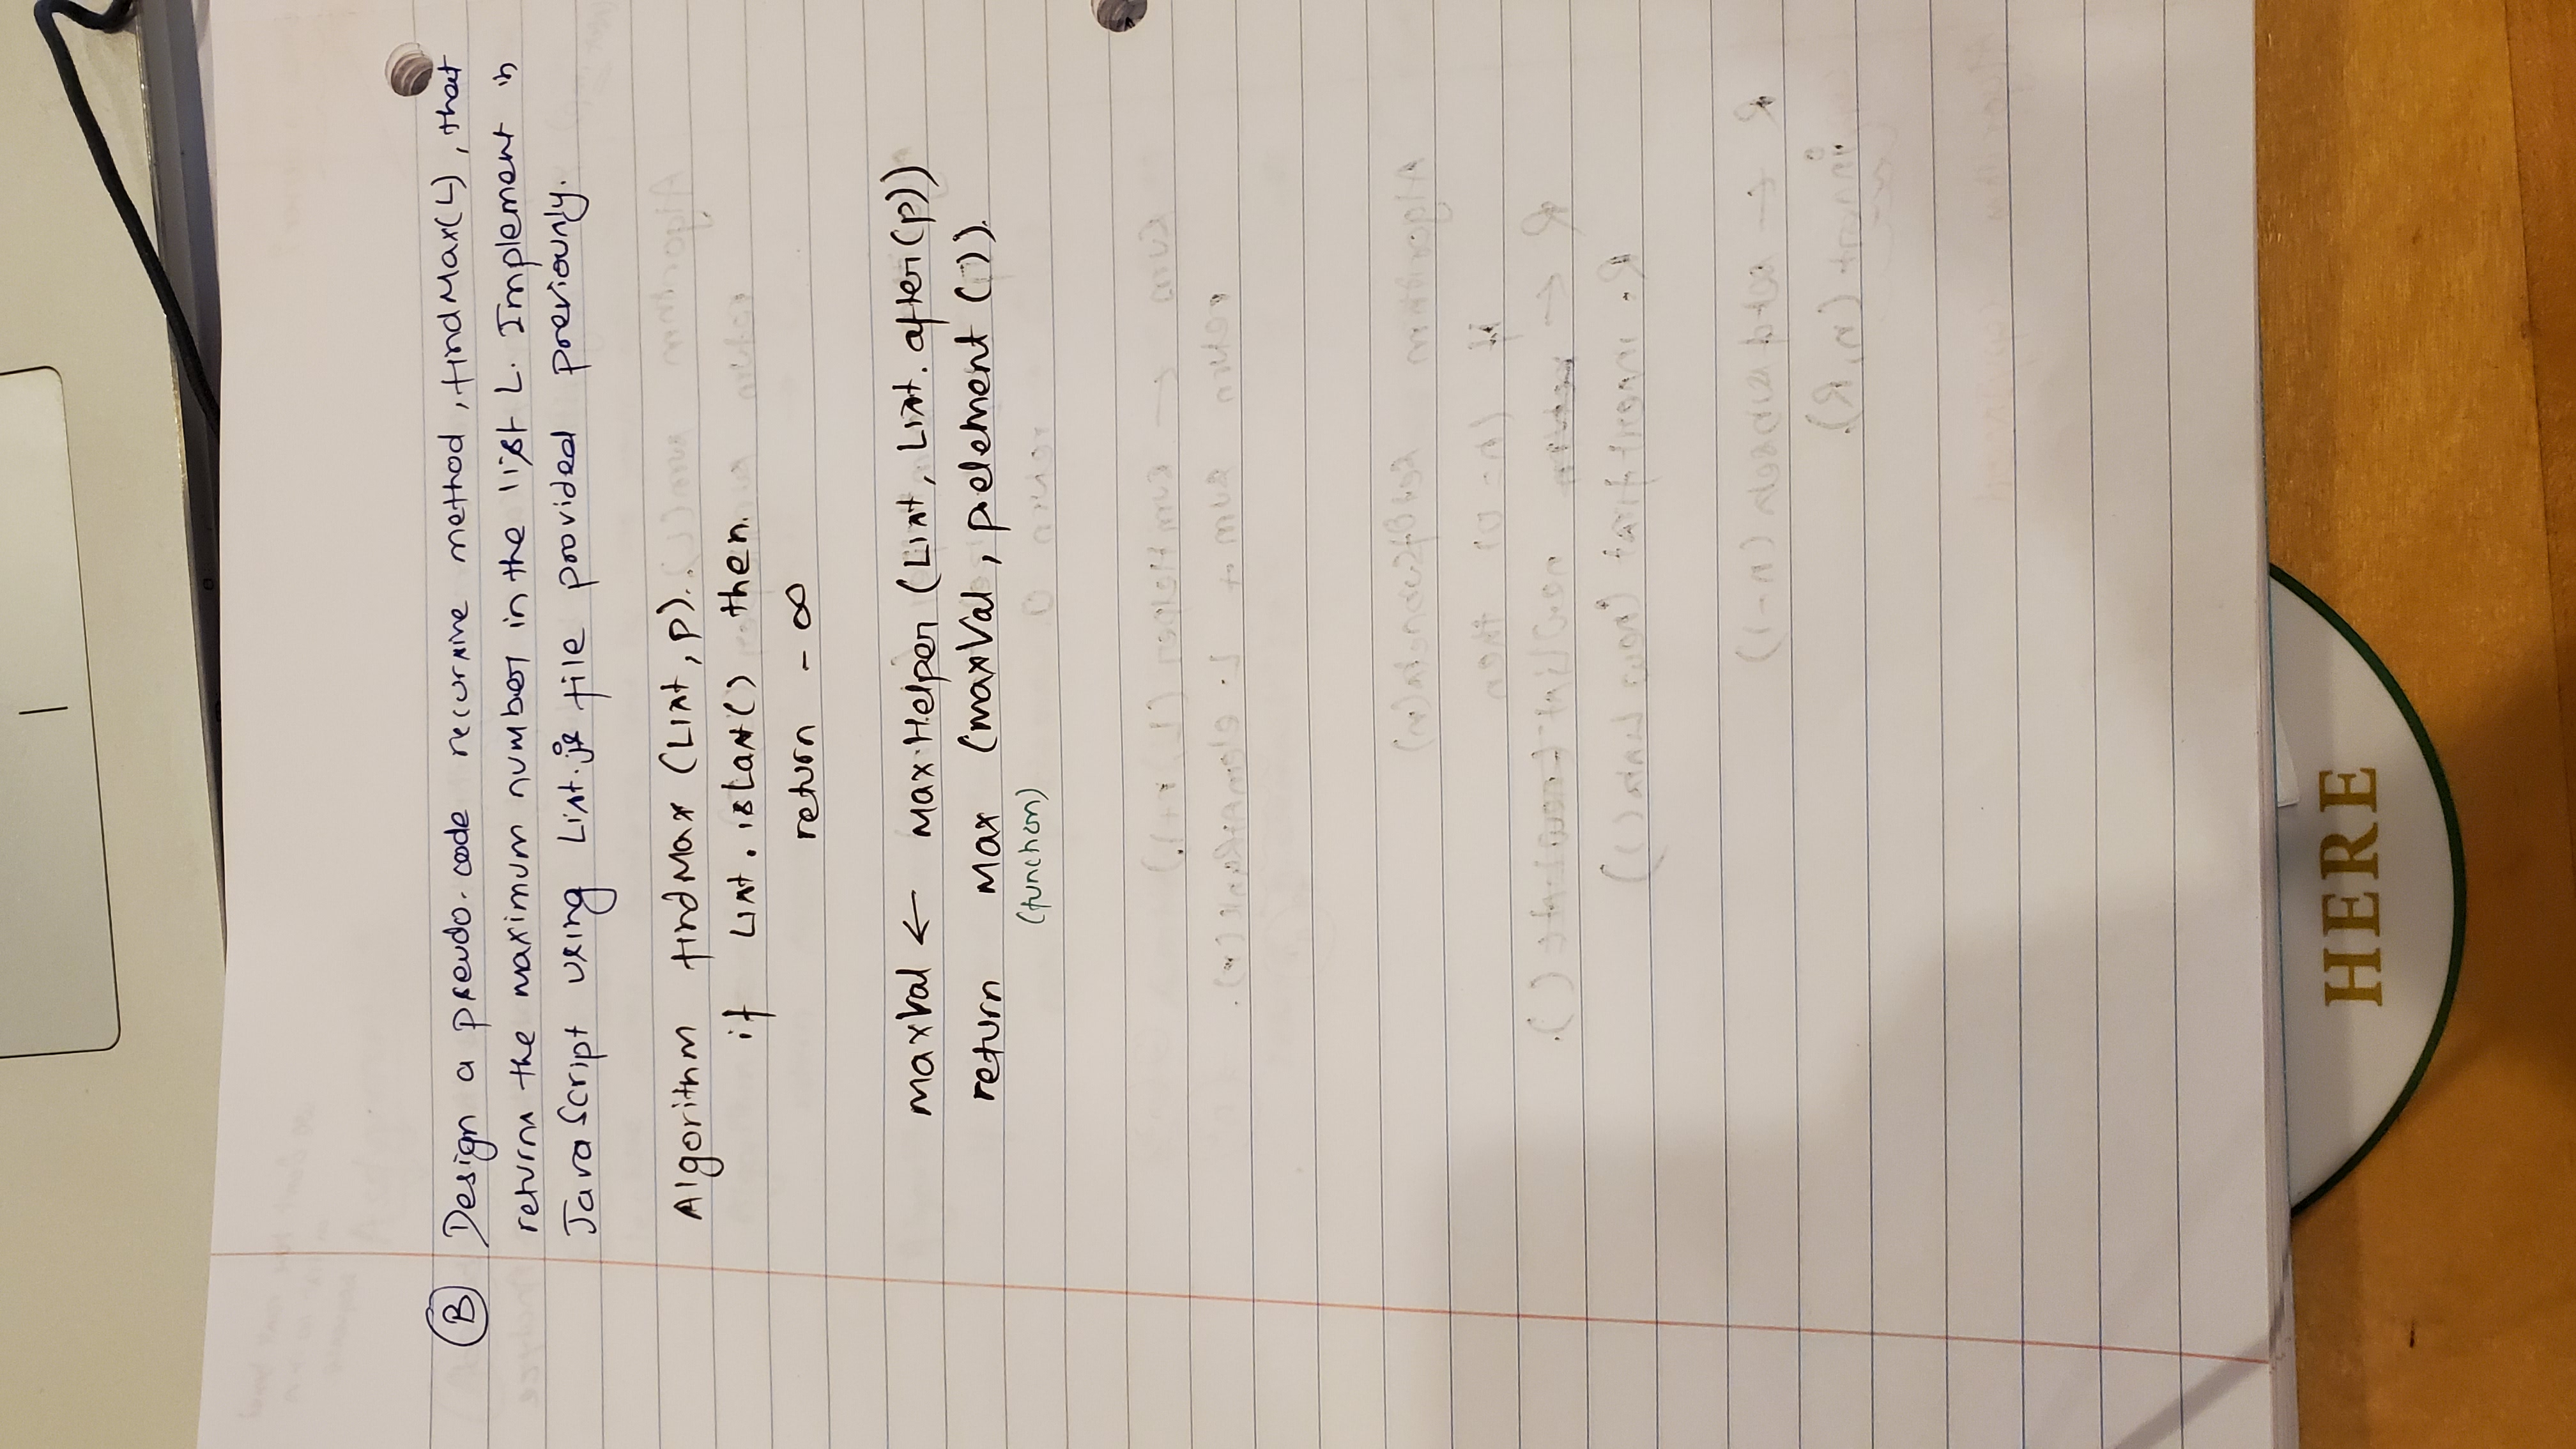 B Design a pseudo-code recursive method, findMax(L), that
returns the maximum number in the list L. Implement in
JavaScript using List.js file provided previously.
Algorithm findMax (List, p)..
if List.isLast() then.
return - ∞
maxVal ← maxHelper (List, List.after(p))
return max (maxVal, p.element ()).
(function)
HERE